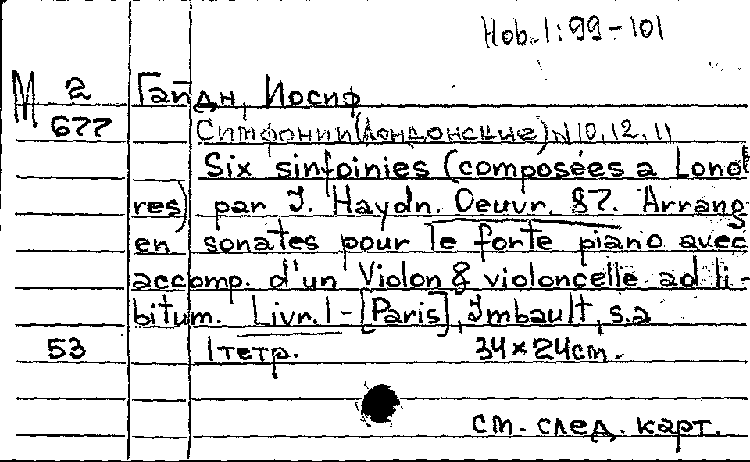 Hob. I: 99-101
М 2 Гайдн, Иосиф
677 Симфонии (Лондонские) N 10, 12, 11
Six sinfoinies (composées a Lond
res) par J. Haydn. Oeuvr. 87. Arrang
en sonates pour le forte piano avec
accomp. d'un Violon & violoncelle ad li-
bitum. Livr. I - [Paris], Imbault, s.a
53 1 тетр. 34×24cm.
см. след. карт.